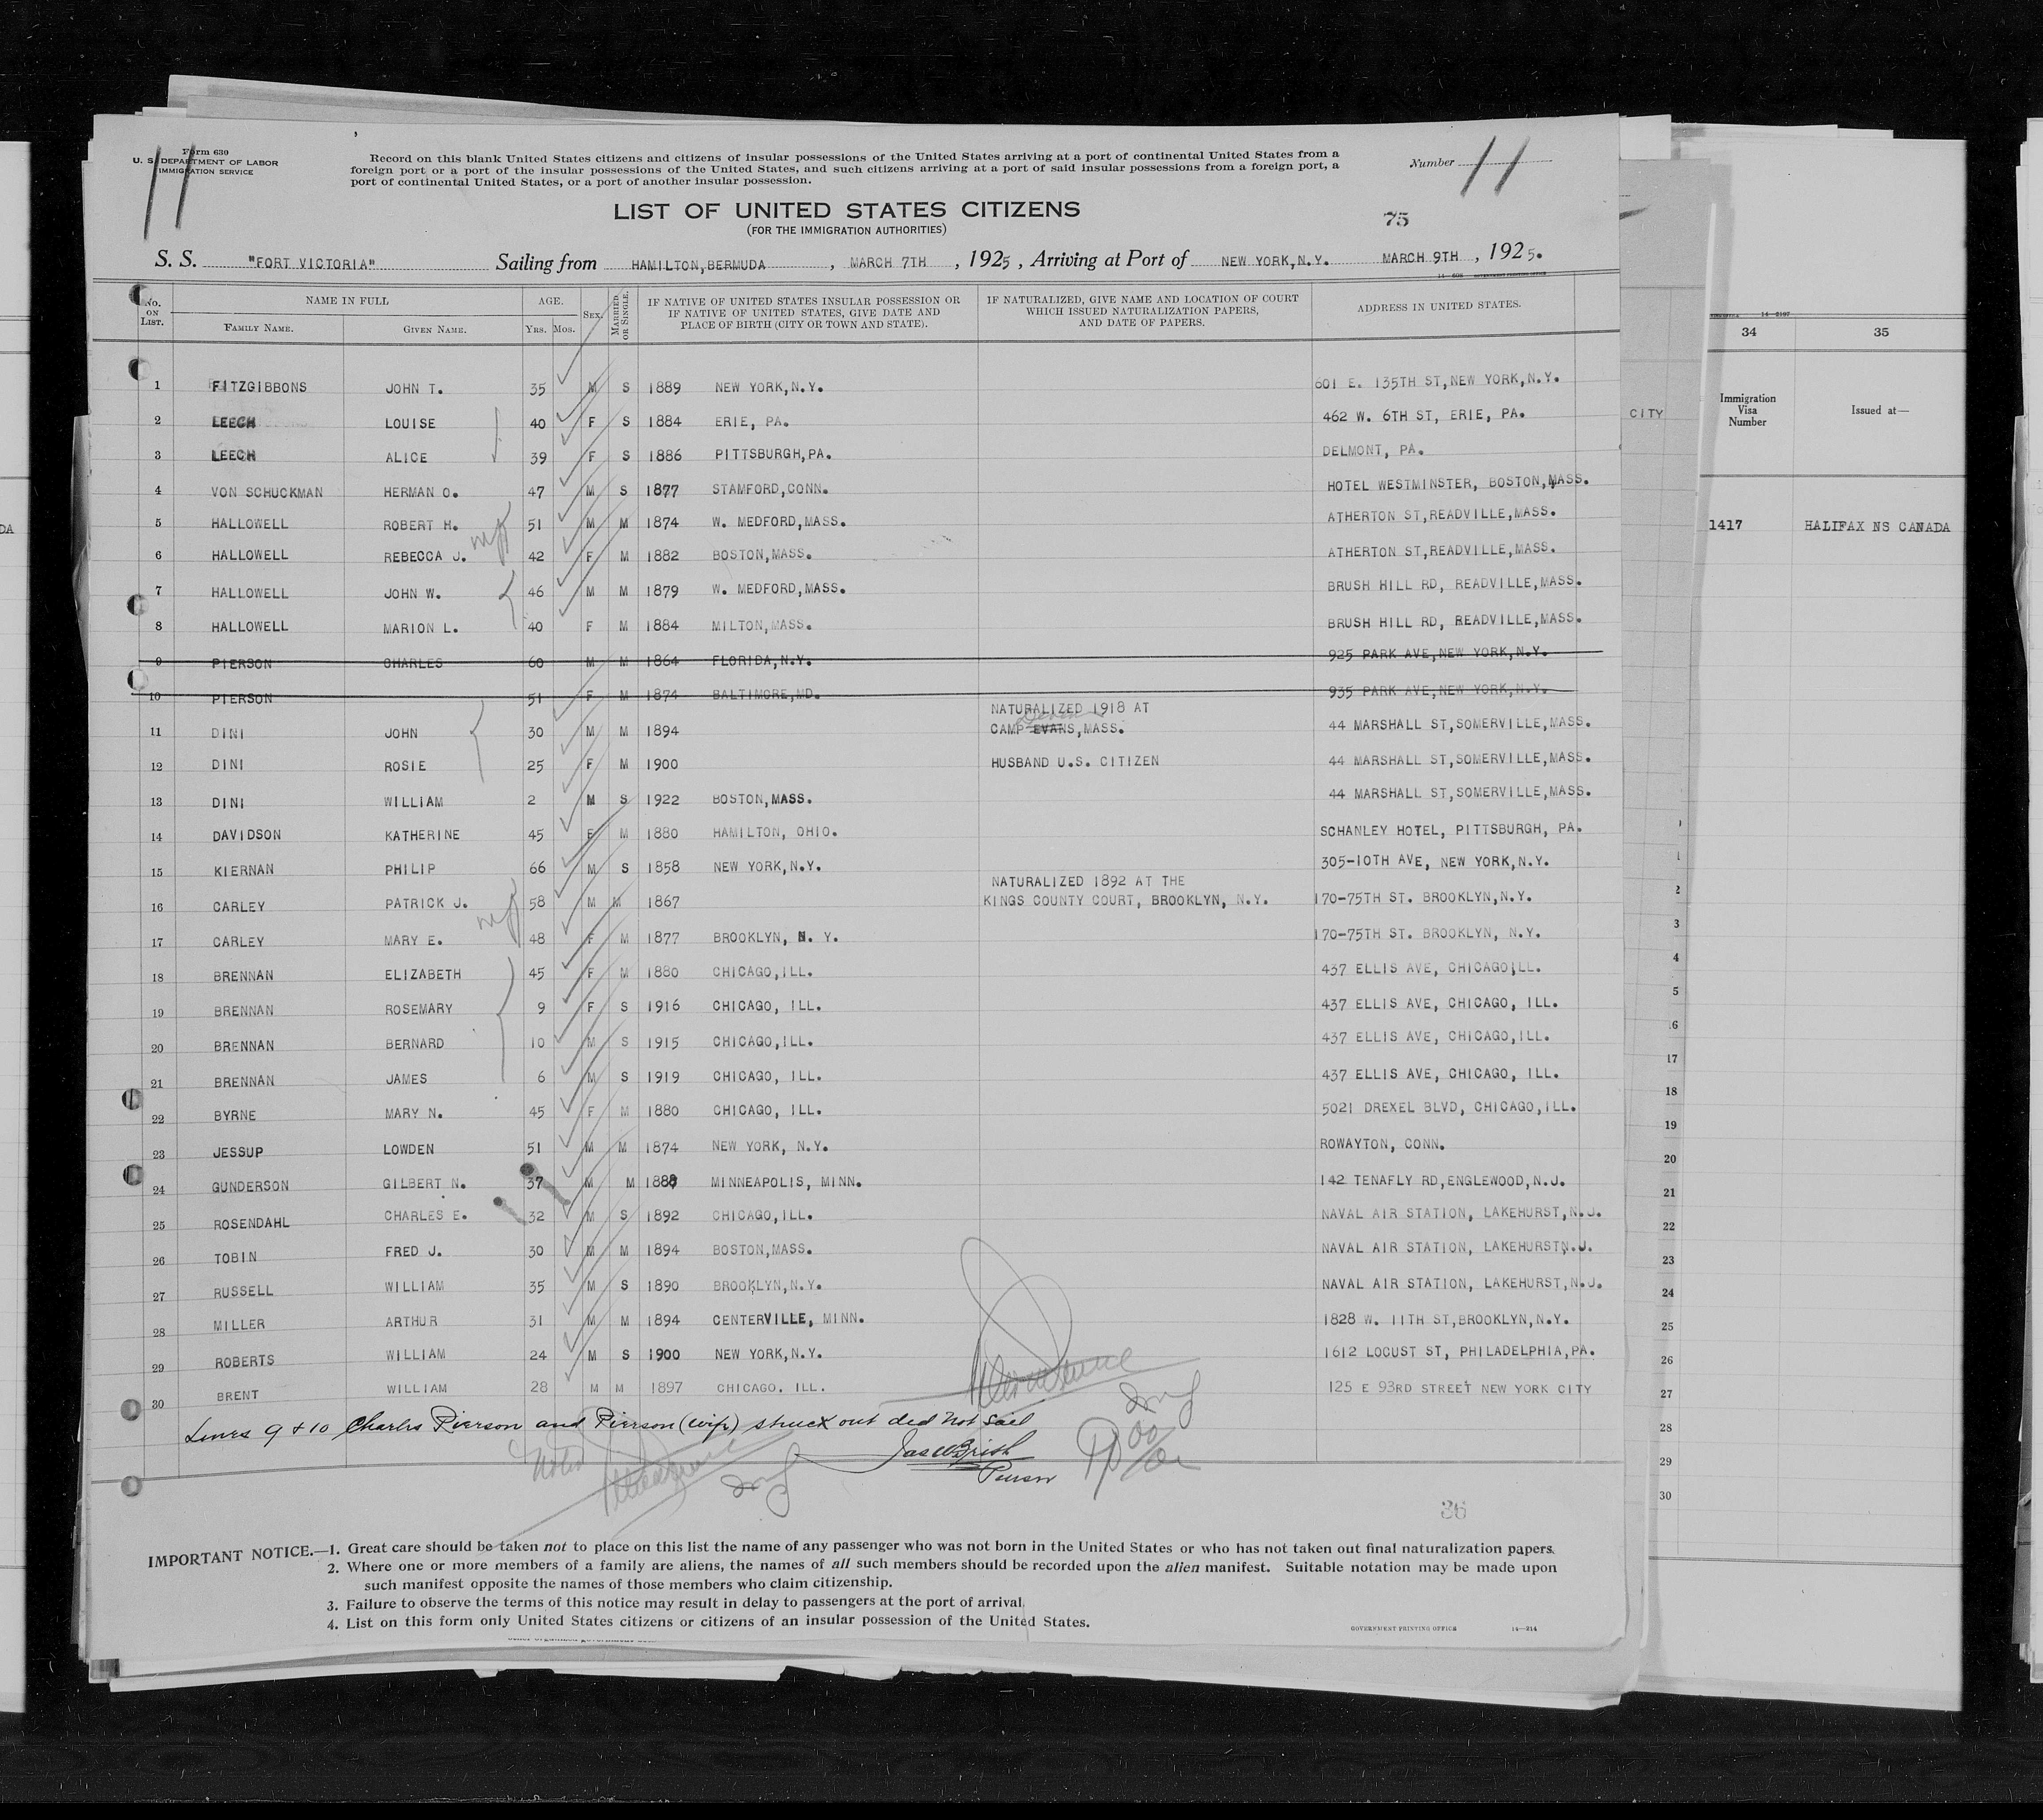 Form 630
U. S. DEPARTMENT OF LABOR
IMMIGRATION SERVICE
11
Record on this blank United States citizens and citizens of insular possessions of the United States arriving at a port of continental United States from a
foreign port or a port of the insular possessions of the United States, and such citizens arriving at a port of said insular possessions from a foreign port, a
port of continental United States, or a port of another insular possession.
Number 11
LIST OF UNITED STATES CITIZENS
(FOR THE IMMIGRATION AUTHORITIES)
75
S. S. "FORT VICTORIA" Sailing from HAMILTON,BERMUDA , MARCH 7TH , 1925 , Arriving at Port of NEW YORK,N.Y. MARCH 9TH , 1925.
No. ON LIST. NAME IN FULL FAMILY NAME. GIVEN NAME. AGE. YRS. MOS. SEX. MARRIED OR SINGLE. IF NATIVE OF UNITED STATES INSULAR POSSESSION OR IF NATIVE OF UNITED STATES, GIVE DATE AND PLACE OF BIRTH (CITY OR TOWN AND STATE). IF NATURALIZED, GIVE NAME AND LOCATION OF COURT WHICH ISSUED NATURALIZATION PAPERS, AND DATE OF PAPERS. ADDRESS IN UNITED STATES.
1 FITZGIBBONS JOHN T. 35 M S 1889 NEW YORK,N.Y. 601 E. 135TH ST,NEW YORK,N.Y.
2 LEECH LOUISE 40 F S 1884 ERIE, PA. 462 W. 6TH ST, ERIE, PA.
3 LEECH ALICE 39 F S 1886 PITTSBURGH,PA. DELMONT, PA.
4 VON SCHUCKMAN HERMAN O. 47 M S 1877 STAMFORD,CONN. HOTEL WESTMINSTER, BOSTON,MASS.
5 HALLOWELL ROBERT H. 51 M M 1874 W. MEDFORD,MASS. ATHERTON ST,READVILLE,MASS.
6 HALLOWELL REBECCA J. 42 F M 1882 BOSTON,MASS. ATHERTON ST,READVILLE,MASS.
7 HALLOWELL JOHN W. 46 M M 1879 W. MEDFORD,MASS. BRUSH HILL RD, READVILLE,MASS.
8 HALLOWELL MARION L. 40 F M 1884 MILTON,MASS. BRUSH HILL RD, READVILLE,MASS.
9 PIERSON CHARLES 60 M M 1864 FLORIDA,N.Y. 925 PARK AVE,NEW YORK,N.Y.
10 PIERSON 51 F M 1874 BALTIMORE,MD. 935 PARK AVE,NEW YORK,N.Y.
NATURALIZED 1918 AT
Deven
11 DINI JOHN 30 M M 1894 CAMP EVANS,MASS. 44 MARSHALL ST,SOMERVILLE,MASS.
12 DINI ROSIE 25 F M 1900 HUSBAND U.S. CITIZEN 44 MARSHALL ST,SOMERVILLE,MASS.
13 DINI WILLIAM 2 M S 1922 BOSTON,MASS. 44 MARSHALL ST,SOMERVILLE,MASS.
14 DAVIDSON KATHERINE 45 F M 1880 HAMILTON, OHIO. SCHANLEY HOTEL, PITTSBURGH, PA.
15 KIERNAN PHILIP 66 M S 1858 NEW YORK,N.Y. 305-10TH AVE, NEW YORK,N.Y.
NATURALIZED 1892 AT THE
16 CARLEY PATRICK J. 58 M M 1867 KINGS COUNTY COURT, BROOKLYN, N.Y. 170-75TH ST. BROOKLYN,N.Y.
17 CARLEY MARY E. 48 F M 1877 BROOKLYN, N. Y. 170-75TH ST. BROOKLYN, N.Y.
18 BRENNAN ELIZABETH 45 F M 1880 CHICAGO,ILL. 437 ELLIS AVE, CHICAGO,ILL.
19 BRENNAN ROSEMARY 9 F S 1916 CHICAGO, ILL. 437 ELLIS AVE, CHICAGO, ILL.
20 BRENNAN BERNARD 10 M S 1915 CHICAGO,ILL. 437 ELLIS AVE, CHICAGO,ILL.
21 BRENNAN JAMES 6 M S 1919 CHICAGO, ILL. 437 ELLIS AVE, CHICAGO, ILL.
22 BYRNE MARY N. 45 F M 1880 CHICAGO, ILL. 5021 DREXEL BLVD, CHICAGO,ILL.
23 JESSUP LOWDEN 51 M M 1874 NEW YORK, N.Y. ROWAYTON, CONN.
24 GUNDERSON GILBERT N. 37 M M 1888 MINNEAPOLIS, MINN. 142 TENAFLY RD,ENGLEWOOD,N.J.
25 ROSENDAHL CHARLES E. 32 M S 1892 CHICAGO,ILL. NAVAL AIR STATION, LAKEHURST,N.J.
26 TOBIN FRED J. 30 M M 1894 BOSTON,MASS. NAVAL AIR STATION, LAKEHURST,N.J.
27 RUSSELL WILLIAM 35 M S 1890 BROOKLYN,N.Y. NAVAL AIR STATION, LAKEHURST,N.J.
28 MILLER ARTHUR 31 M M 1894 CENTERVILLE, MINN. 1828 W. 11TH ST,BROOKLYN,N.Y.
29 ROBERTS WILLIAM 24 M S 1900 NEW YORK,N.Y. 1612 LOCUST ST, PHILADELPHIA,PA.
30 BRENT WILLIAM 28 M M 1897 CHICAGO. ILL. 125 E 93RD STREET NEW YORK CITY
Lines 9 & 10 Charles Pierson and Pierson (wife) struck out did not sail
Noted
Purser
36
IMPORTANT NOTICE.—1. Great care should be taken not to place on this list the name of any passenger who was not born in the United States or who has not taken out final naturalization papers.
2. Where one or more members of a family are aliens, the names of all such members should be recorded upon the alien manifest. Suitable notation may be made upon
such manifest opposite the names of those members who claim citizenship.
3. Failure to observe the terms of this notice may result in delay to passengers at the port of arrival.
4. List on this form only United States citizens or citizens of an insular possession of the United States.
GOVERNMENT PRINTING OFFICE 14—214
34 35
Immigration Visa Number Issued at—
CITY
1417 HALIFAX NS CANADA
DA
2
3
4
5
16
17
18
19
20
21
22
23
24
25
26
27
28
29
30